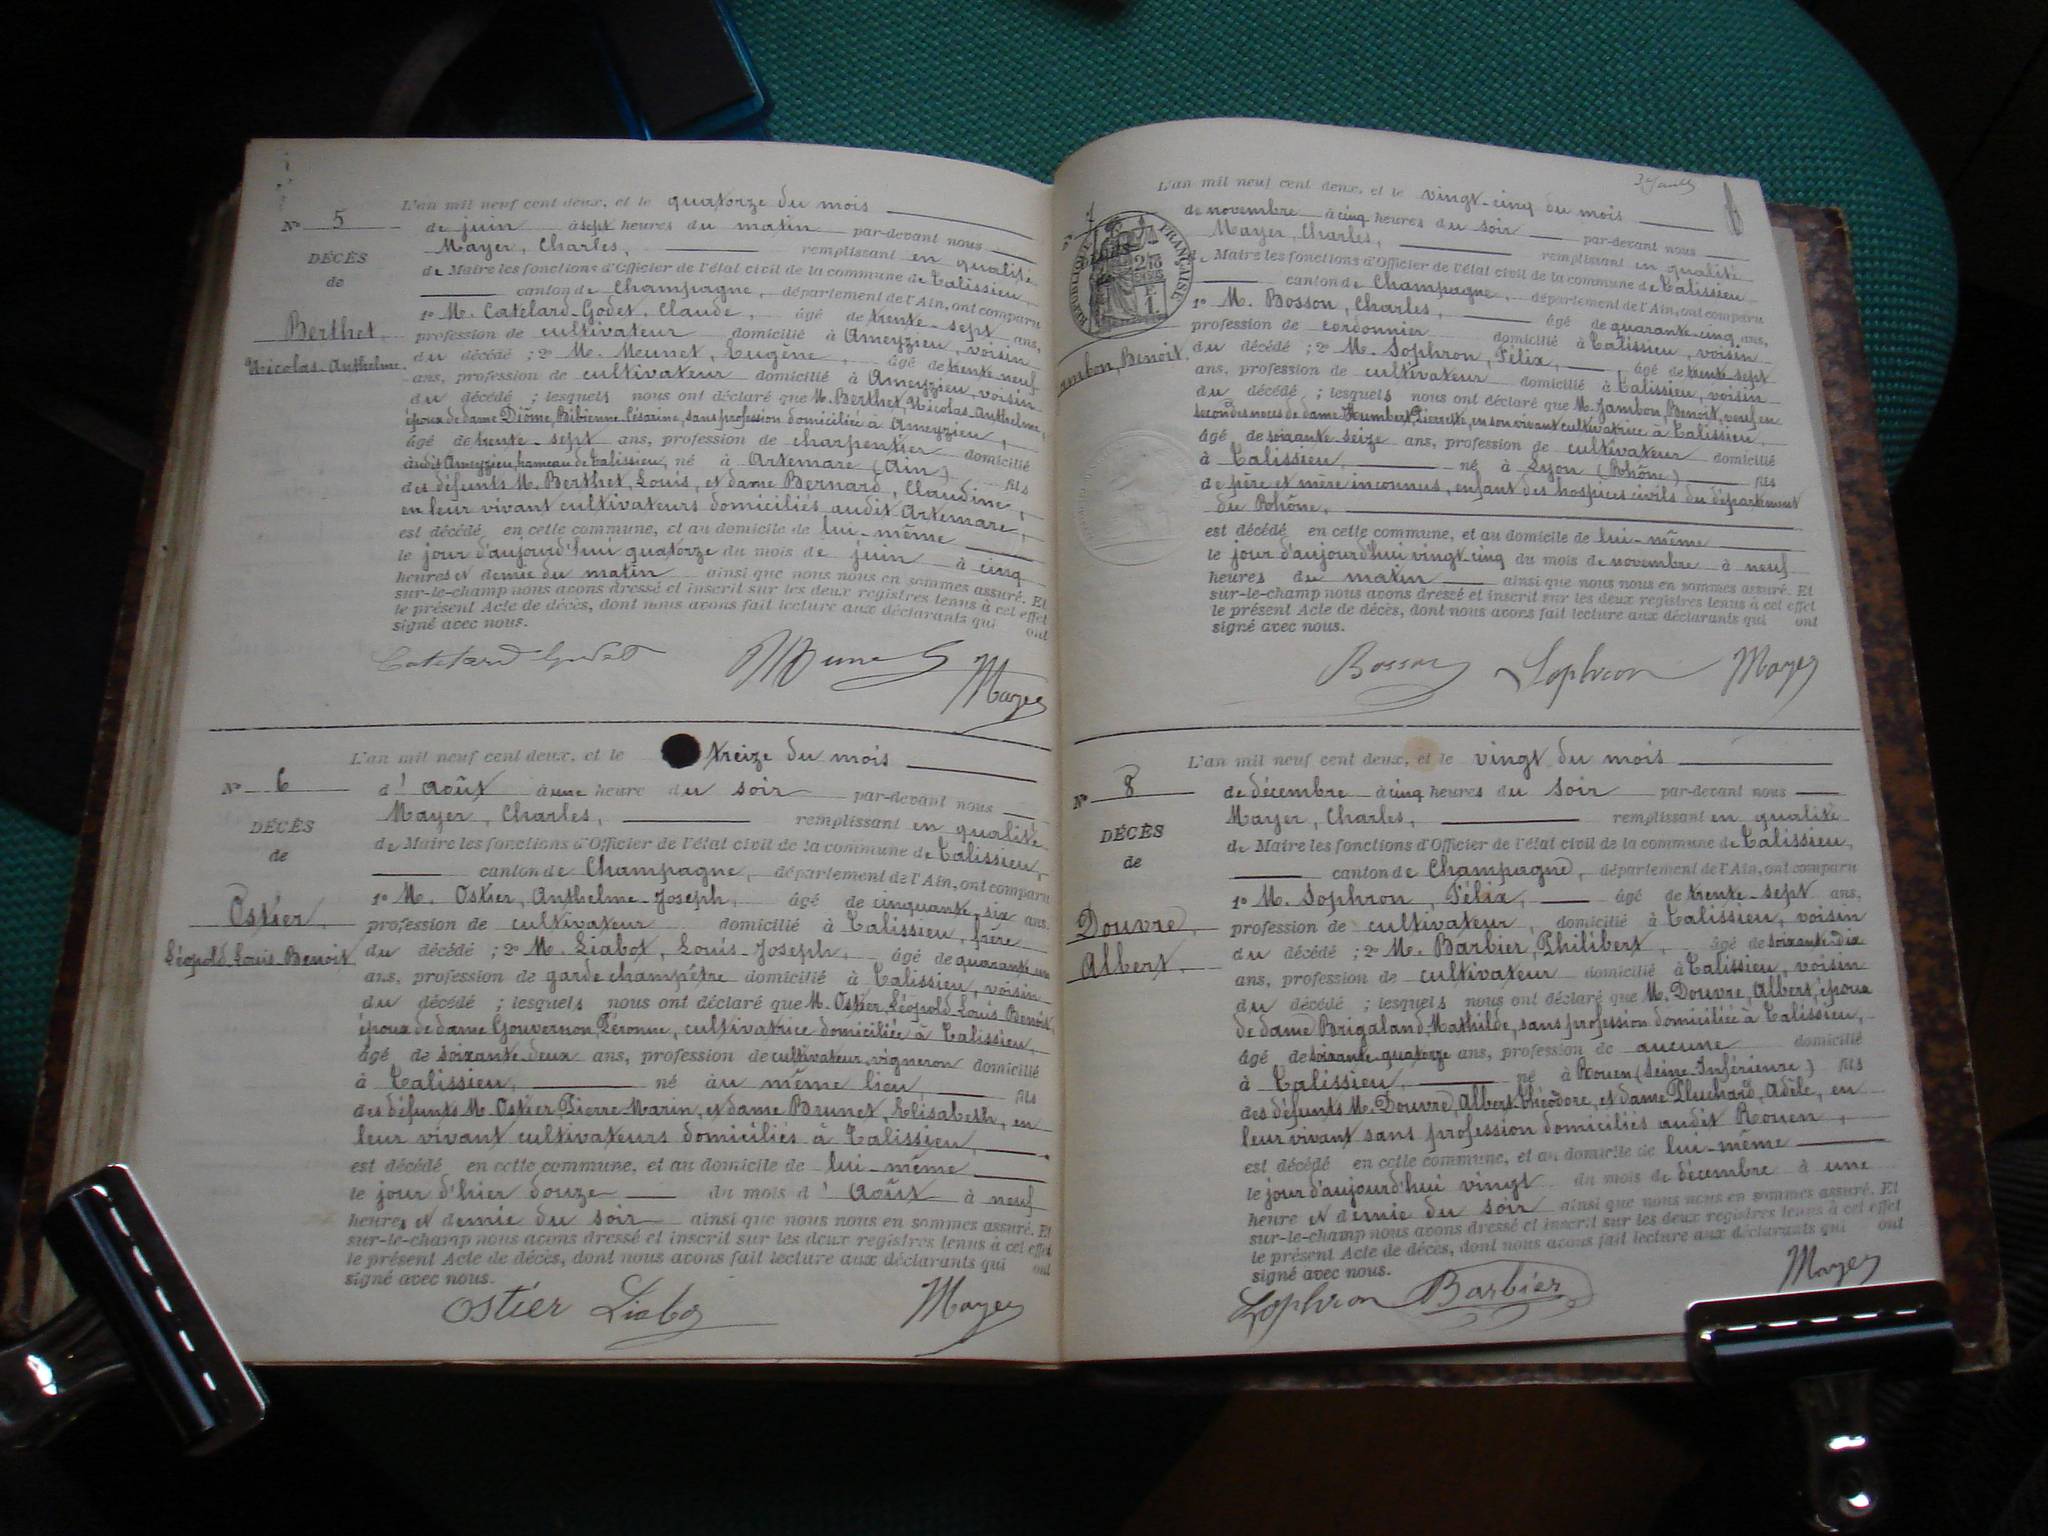 L'an mil neuf cent deux, et le quatorze du mois
N° 5
de juin à sept heures du matin par-devant nous
Mayer, Charles, remplissant en qualité
DÉCÈS
de Maire les fonctions d'Officier de l'état civil de la commune de Talissieu,
de
canton de Champagne, département de l'Ain, ont comparu
1° M. Catelard-Godet, Claude, âgé de trente-sept ans,
Berthet,
profession de cultivateur domicilié à Ameyzieu, voisin
Nicolas-Anthelme.
du décédé ; 2° M. Meunet, Eugène, âgé de trente-neuf
ans, profession de cultivateur domicilié à Ameyzieu, voisin
du décédé ; lesquels nous ont déclaré que M. Berthet, Nicolas-Anthelme,
époux de dame Diôme, Bibienne-Césarine, sans profession domiciliée à Ameyzieu,
âgé de trente-sept ans, profession de charpentier domicilié
audit Ameyzieu, hameau de Talissieu, né à Artemare (Ain) fils
des défunts M. Berthet, Louis, et dame Bernard, Claudine,
en leur vivant cultivateurs domiciliés audit Artemare,
est décédé en cette commune, et au domicile de lui-même
le jour d'aujourd'hui quatorze du mois de juin à cinq
heures et demie du matin ainsi que nous nous en sommes assuré. Et
sur-le-champ nous avons dressé et inscrit sur les deux registres tenus à cet effet
le présent Acte de décès, dont nous avons fait lecture aux déclarants qui ont
signé avec nous.
Catelard Godet Meunet Mayer
L'an mil neuf cent deux, et le treize du mois
N° 6
d'Août à une heure du soir par-devant nous
Mayer, Charles, remplissant en qualité
DÉCÈS
de Maire les fonctions d'Officier de l'état civil de la commune de Talissieu,
de
canton de Champagne, département de l'Ain, ont comparu
1° M. Ostier, Anthelme-Joseph, âgé de cinquante-six ans,
Ostier,
profession de cultivateur domicilié à Talissieu, frère
Léopold-Louis-Benoit
du décédé ; 2° M. Liabot, Louis-Joseph, âgé de quarante un
ans, profession de garde champêtre domicilié à Talissieu, voisin
du décédé ; lesquels nous ont déclaré que M. Ostier, Léopold-Louis-Benoit,
époux de dame Gouvernon, Péronne, cultivatrice domiciliée à Talissieu,
âgé de soixante-deux ans, profession de cultivateur, vigneron domicilié
à Talissieu, né au même lieu fils
des défunts M. Ostier Pierre-Marin, et dame Brunet, Elisabeth, en
leur vivant cultivateurs domiciliés à Talissieu,
est décédé en cette commune, et au domicile de lui-même
le jour d'hier douze du mois d'Août à neuf
heures et demie du soir ainsi que nous nous en sommes assuré. Et
sur-le-champ nous avons dressé et inscrit sur les deux registres tenus à cet effet
le présent Acte de décès, dont nous avons fait lecture aux déclarants qui ont
signé avec nous.
Ostier Liabot Mayer
L'an mil neuf cent deux, et le vingt-cinq du mois
N° 7
de novembre à cinq heures du soir par-devant nous
Mayer, Charles, remplissant en qualité
RÉPUBLIQUE FRANÇAISE
de Maire les fonctions d'Officier de l'état civil de la commune de Talissieu
canton de Champagne, département de l'Ain, ont comparu
1° M. Bosson, Charles, âgé de quarante-cinq ans,
profession de cordonnier domicilié à Talissieu, voisin
ambon, Benoit.
du décédé ; 2° M. Sophron, Félix, âgé de trente-sept
ans, profession de cultivateur domicilié à Talissieu, voisin
du décédé ; lesquels nous ont déclaré que M. Jambon, Benoit, veuf en
secondes noces de dame Humbert, Pierrette, en son vivant cultivatrice à Talissieu,
âgé de soixante-seize ans, profession de cultivateur domicilié
à Talissieu, né à Lyon (Rhône) fils
de père et mère inconnus, enfant des hospices civils du département
du Rhône,
est décédé en cette commune, et au domicile de lui-même
le jour d'aujourd'hui vingt-cinq du mois de novembre à neuf
heures du matin ainsi que nous nous en sommes assuré. Et
sur-le-champ nous avons dressé et inscrit sur les deux registres tenus à cet effet
le présent Acte de décès, dont nous avons fait lecture aux déclarants qui ont
signé avec nous.
Bosson Sophron Mayer
L'an mil neuf cent deux, et le vingt du mois
N° 8
de décembre à cinq heures du soir par-devant nous
Mayer, Charles, remplissant en qualité
DÉCÈS
de Maire les fonctions d'Officier de l'état civil de la commune de Talissieu,
de
canton de Champagne, département de l'Ain, ont comparu
1° M. Sophron, Félix, âgé de trente-sept ans,
Douvre,
profession de cultivateur, domicilié à Talissieu, voisin
Albert,
du décédé ; 2° M. Barbier, Philibert, âgé de soixante-dix
ans, profession de cultivateur domicilié à Talissieu, voisin
du décédé ; lesquels nous ont déclaré que M. Douvre, Albert, époux
de dame Brigaland, Mathilde, sans profession domiciliée à Talissieu,
âgé de soixante-quatorze ans, profession de aucune domicilié
à Talissieu, né à Rouen (Seine-Inférieure) fils
des défunts M. Douvre, Albert-Théodore, et dame Pluchard, Adèle, en
leur vivant sans profession domiciliés audit Rouen,
est décédé en cette commune, et au domicile de lui-même
le jour d'aujourd'hui vingt du mois de décembre à une
heure et demie du soir ainsi que nous nous en sommes assuré. Et
sur-le-champ nous avons dressé et inscrit sur les deux registres tenus à cet effet
le présent Acte de décès, dont nous avons fait lecture aux déclarants qui ont
signé avec nous.
Sophron Barbier Mayer